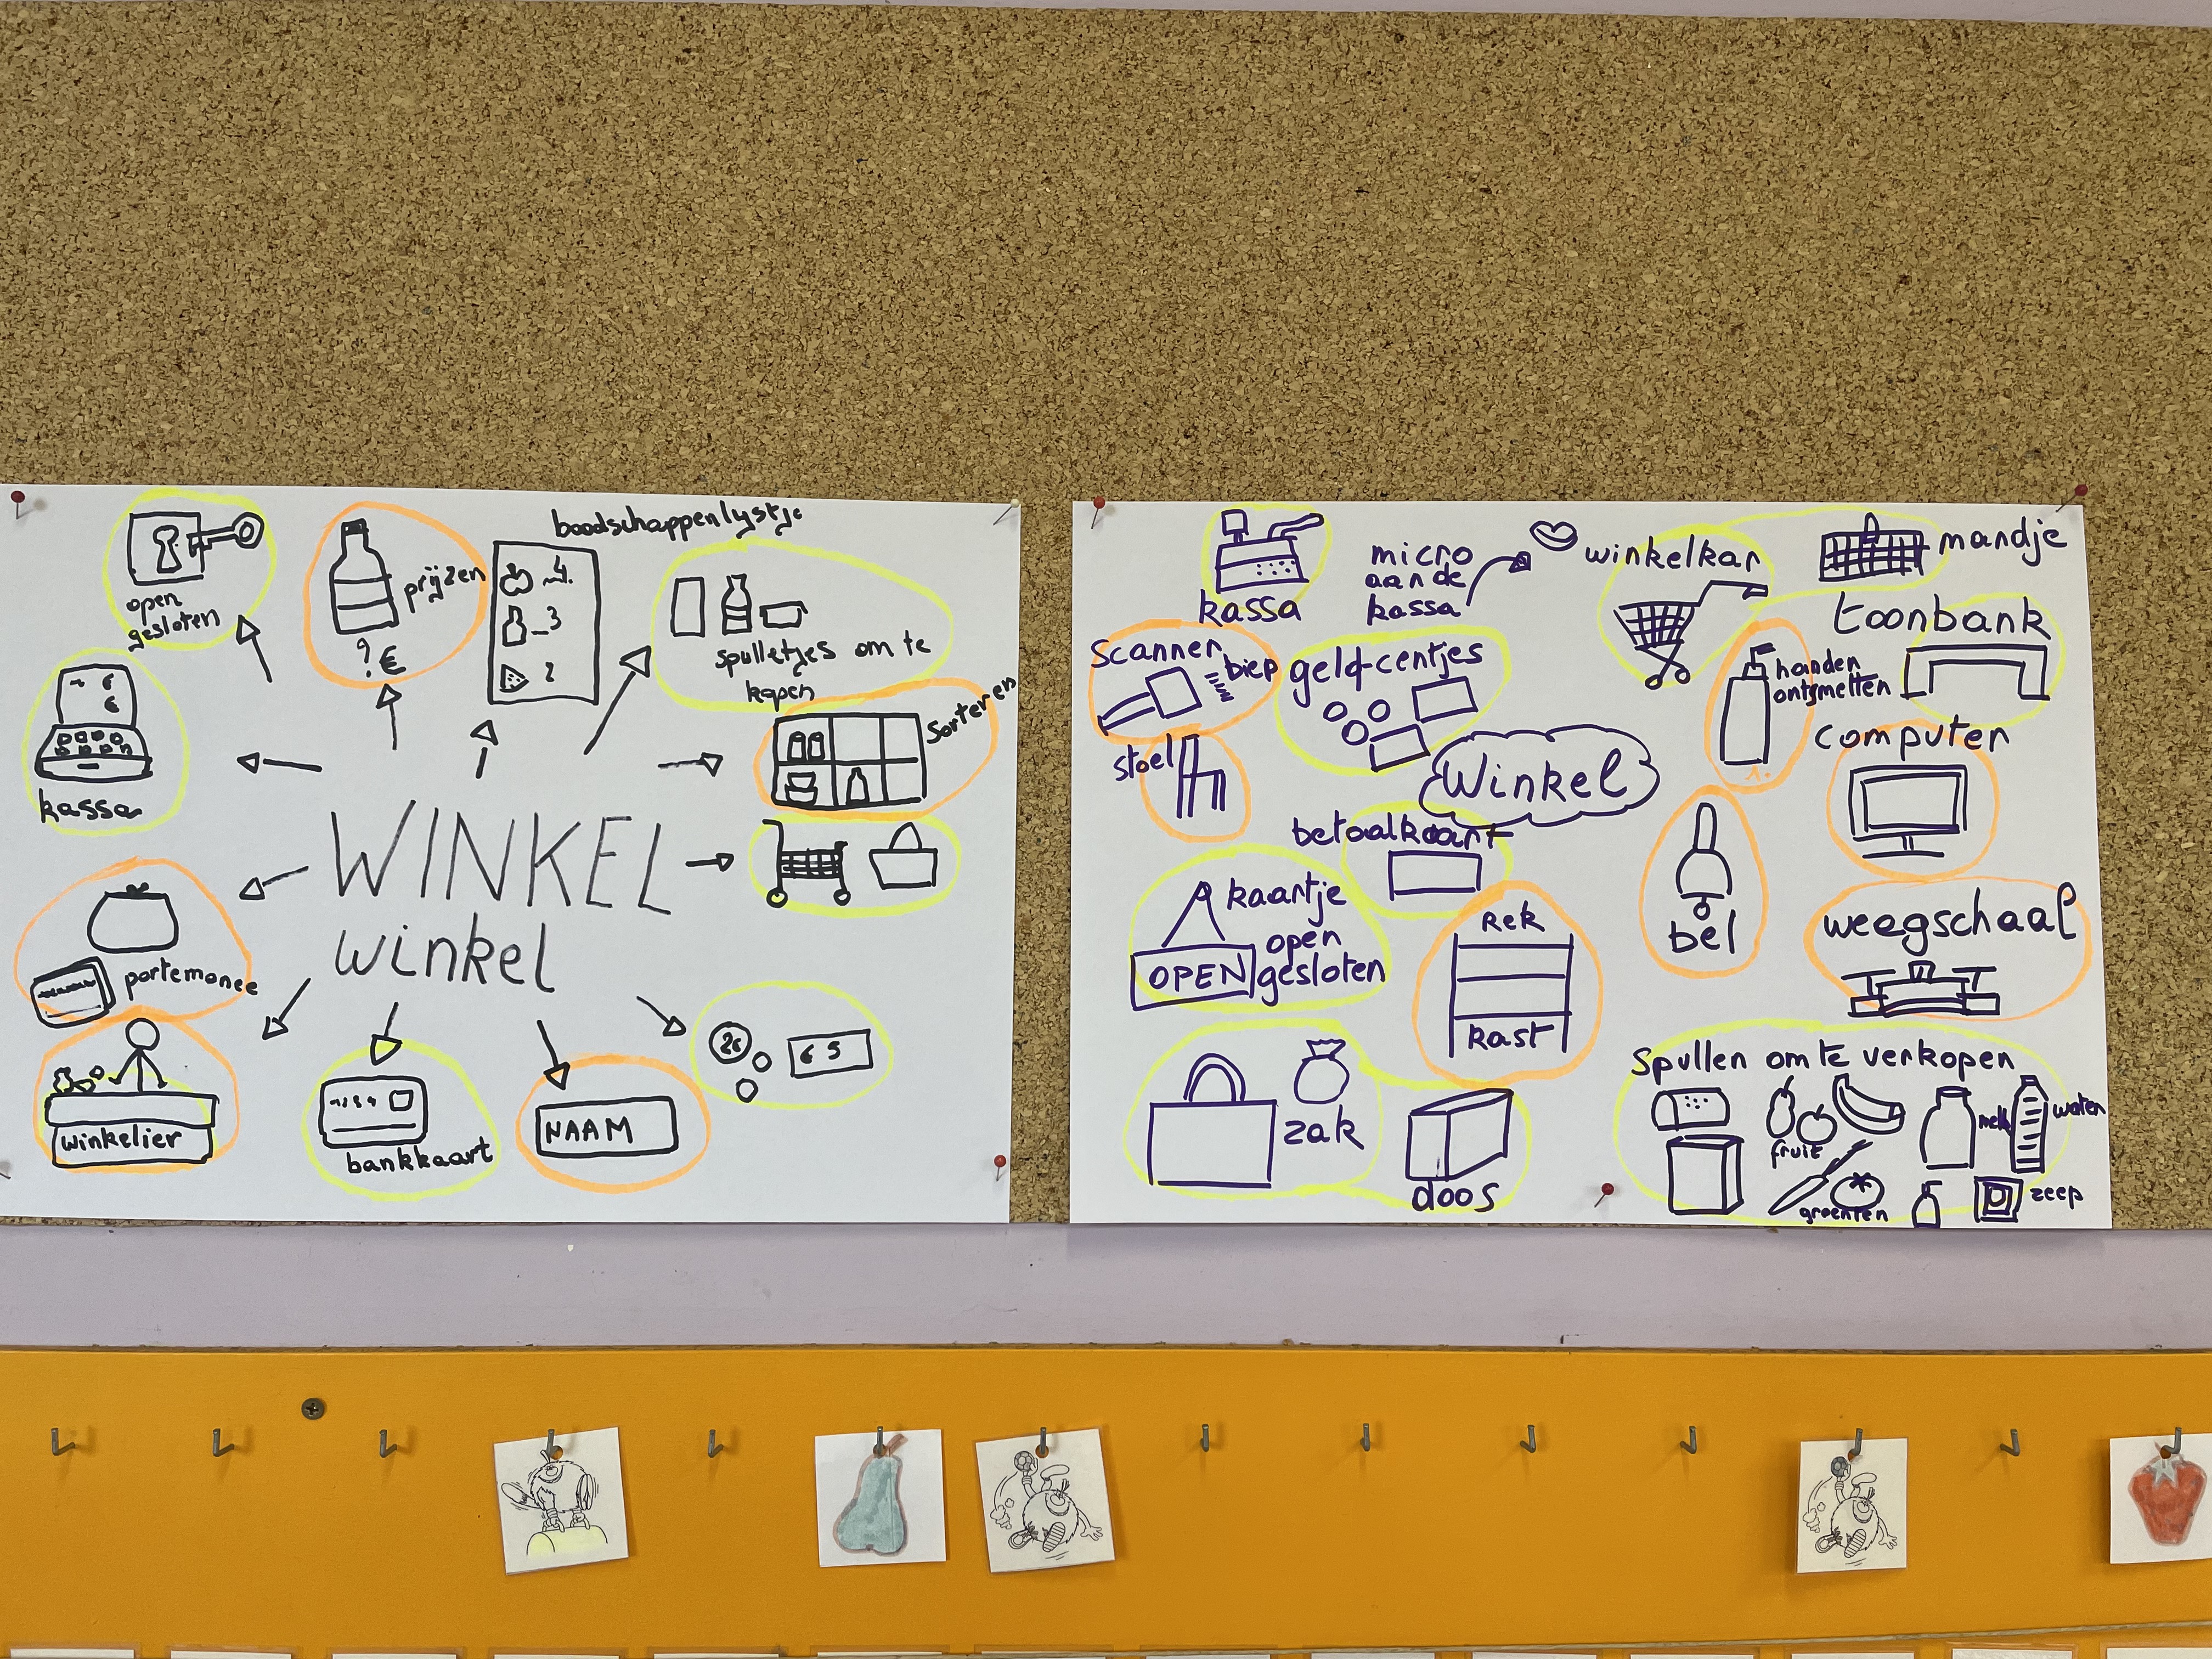 open
gesloten
prijzen
? €
boodschappenlijstje
4
3
2
spulletjes om te
kopen
sorteren
kassa
WINKEL
winkel
portemonee
winkelier
bankkaart
NAAM
2€
€ 5
kassa
micro
aan de
kassa
winkelkar
mandje
toonbank
scanner
biep
geld-centjes
handen
ontsmetten
stoel
Winkel
computer
betaalkaart
kaartje
open
gesloten
OPEN
Rek
kast
bel
weegschaal
zak
doos
Spullen om te verkopen
fruit
melk
water
groenten
zeep